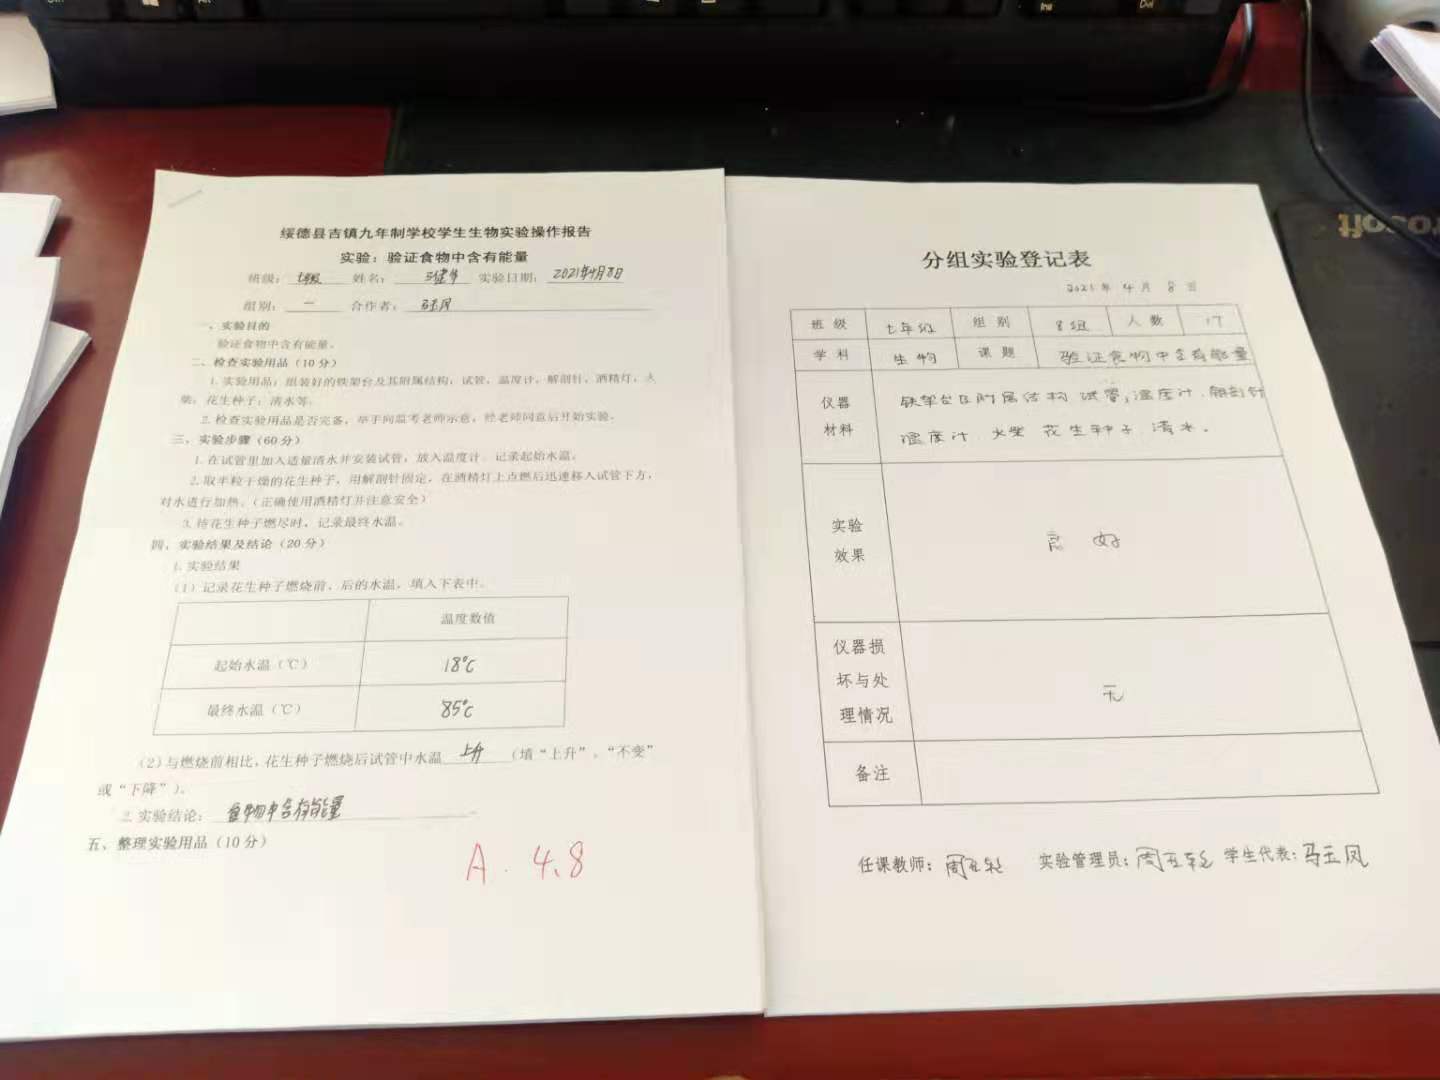 Ins
Del
绥德县吉镇九年制学校学生生物实验操作报告
实验：验证食物中含有能量
班级： 姓名： 实验日期： 2021年4月8日
组别： 一 合作者：
一、实验目的
验证食物中含有能量。
二、检查实验用品（10分）
1.实验用品：组装好的铁架台及其附属结构，试管，温度计，解剖针，酒精灯，火
柴；花生种子；清水等。
2.检查实验用品是否完备，举手向监考老师示意，经老师同意后开始实验。
三、实验步骤（60分）
1.在试管里加入适量清水并安装试管，放入温度计，记录起始水温。
2.取半粒干燥的花生种子，用解剖针固定，在酒精灯上点燃后迅速移入试管下方，
对水进行加热。（正确使用酒精灯并注意安全）
3.待花生种子燃尽时，记录最终水温。
四、实验结果及结论（20分）
1.实验结果
（1）记录花生种子燃烧前、后的水温，填入下表中。
温度数值
起始水温（℃） 18℃
最终水温（℃） 85℃
（2）与燃烧前相比，花生种子燃烧后试管中水温 上升 （填“上升”、“不变”
或“下降”）。
2.实验结论： 食物中含有能量
五、整理实验用品（10分）
A. 4.8
分组实验登记表
2021年 4月 8日
班级 七年级 组别 8组 人数 17
学科 生物 课题 验证食物中含有能量
仪器材料 铁架台及附属结构 试管，温度计，解剖针
温度计 火柴 花生种子 清水。
实验效果 良好
仪器损坏与处理情况 无
备注
任课教师： 实验管理员： 学生代表：马玉凤
rosoft